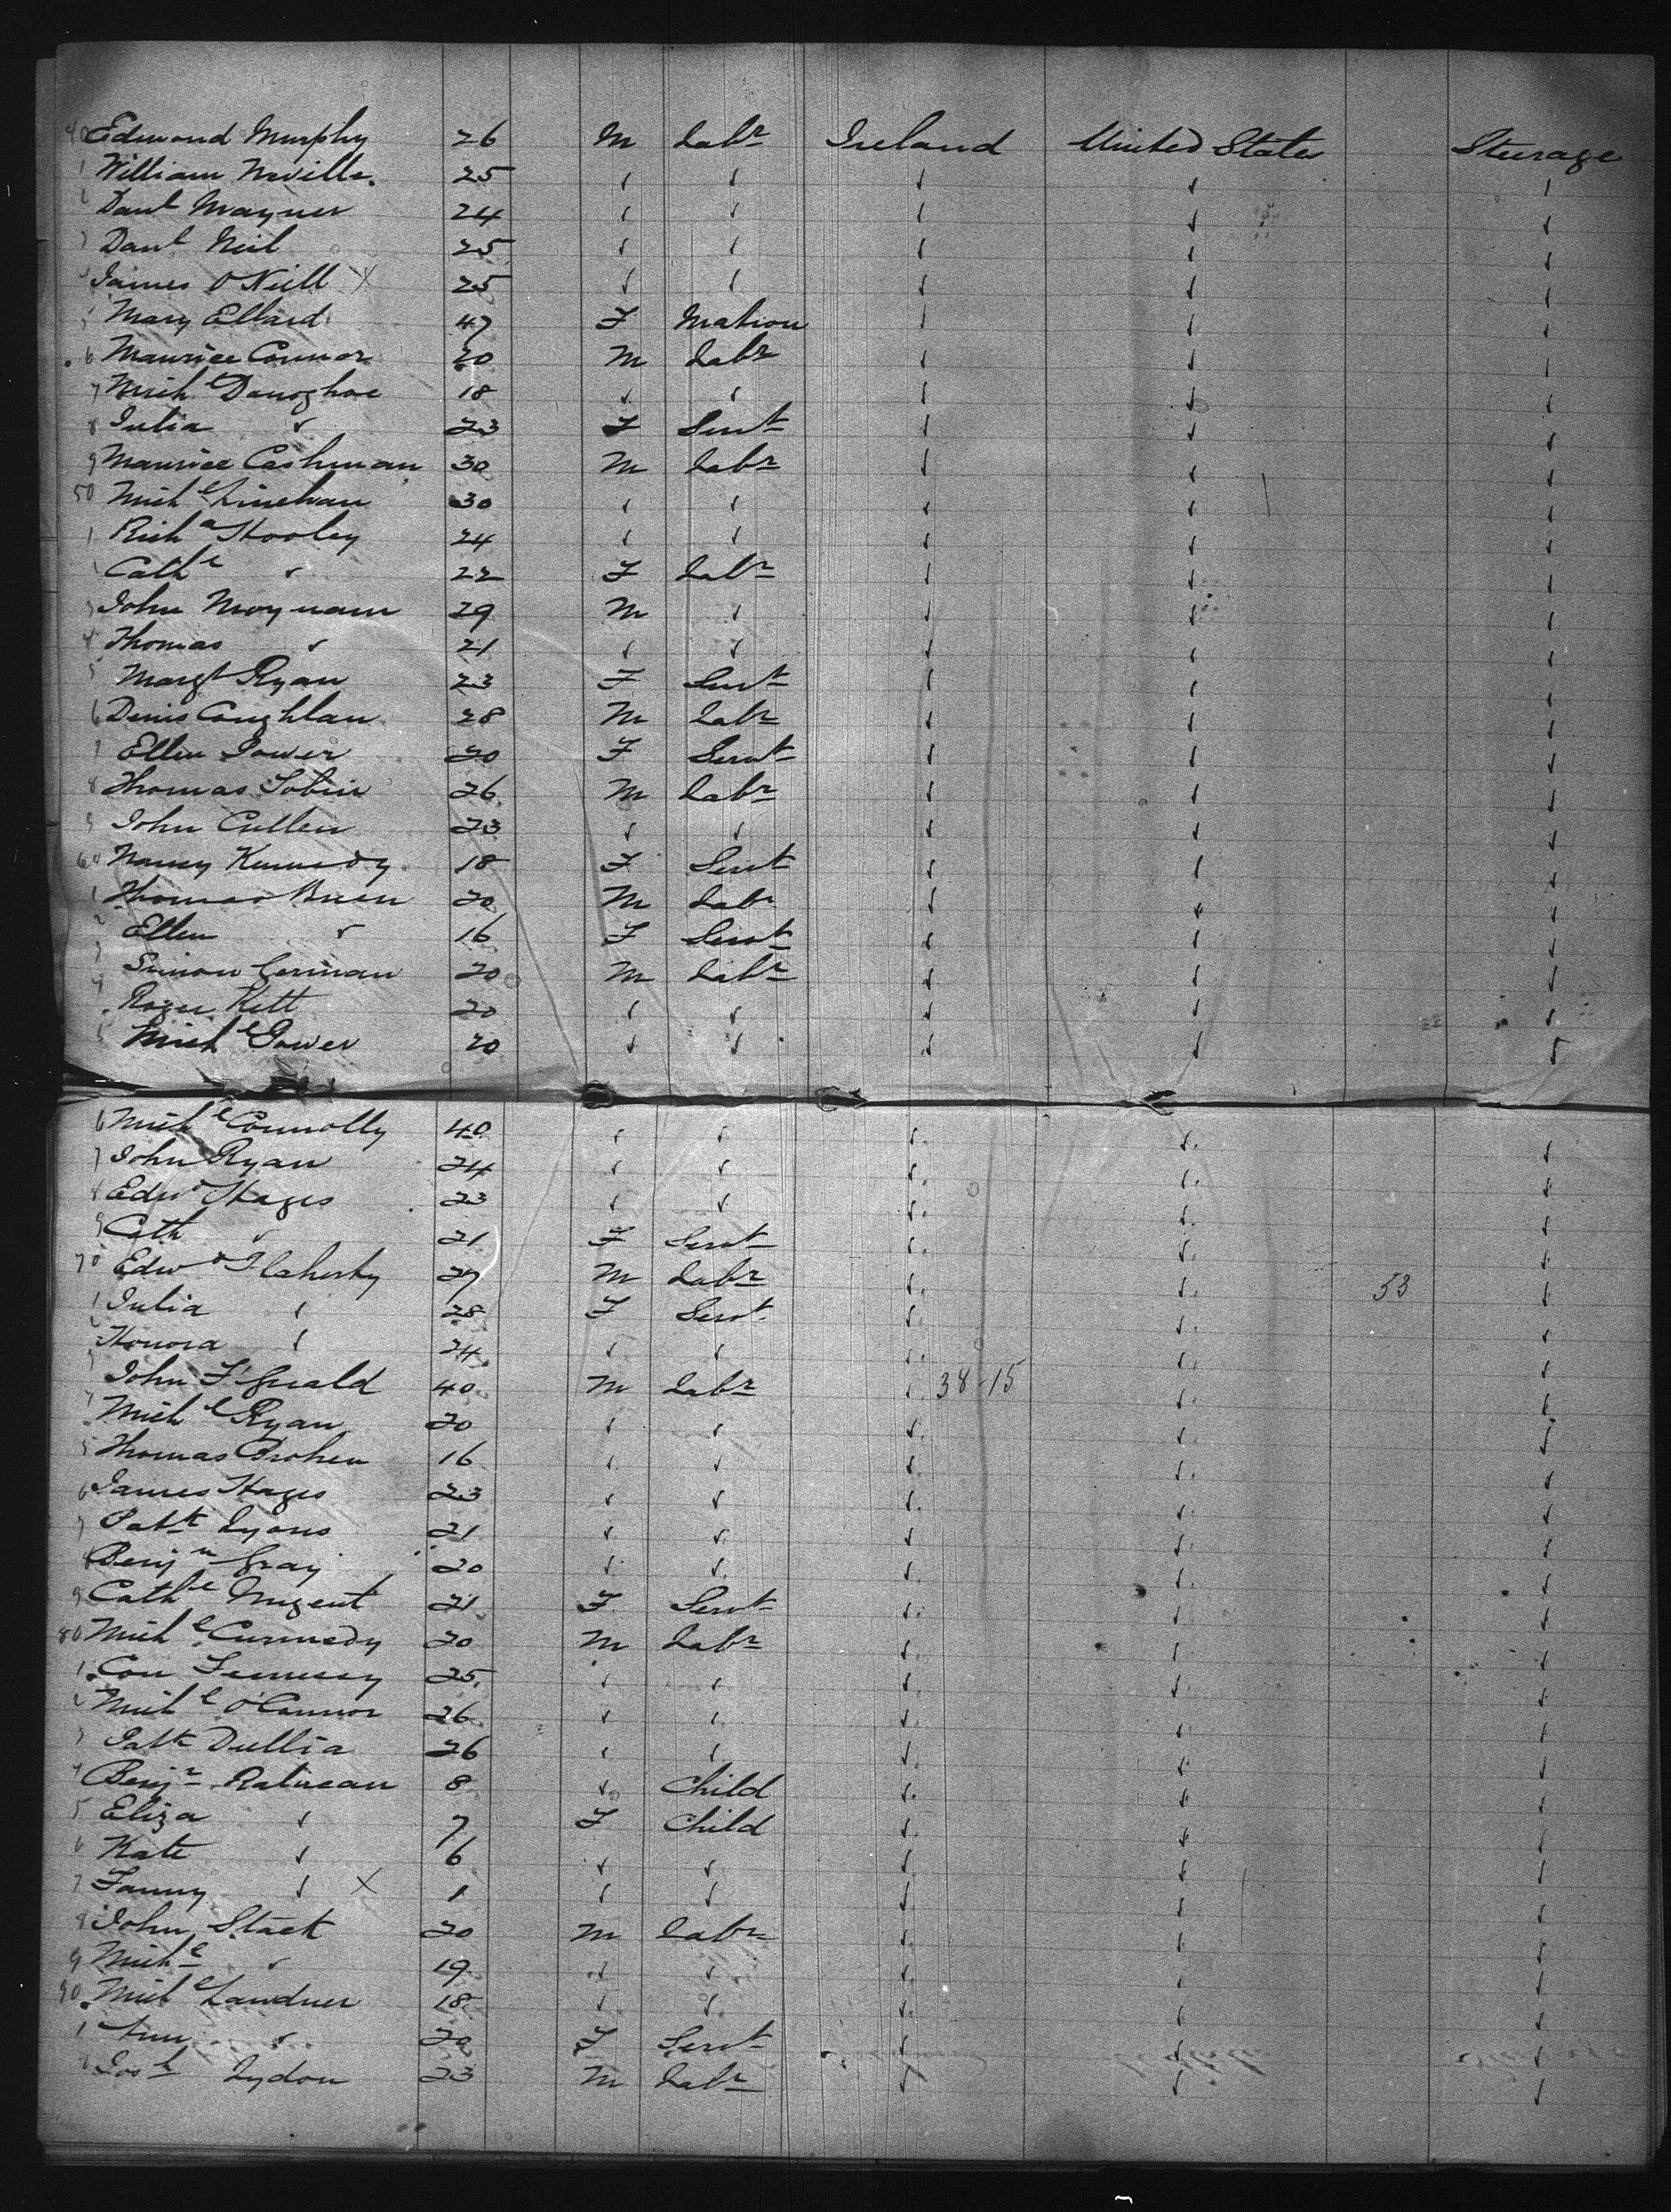 40 Edmond Murphy 26 M Labr Ireland United States Steerage
1 William Neville. 25 " " " " "
2 Danl Mayner 24 " " " " "
3 Danl Neil 25 " " " " "
4 James O'Neill X 25 " " " " "
5 Mary Ellard 47 F Matron " " "
6 Maurice Connor 20 M Labr " " "
7 Michl Donoghoe 18 " " " " "
8 Julia " 23 F Servt " " "
9 Maurice Cashman 30 M Labr " " "
50 Michl Linehan 30 " " " " "
1 Richd Hooley 24 " " " " "
Cathe " 22 F Labr " " "
3 John Moynam 29 M " " " "
4 Thomas " 21 " " " " "
5 Margt Ryan 23 F Servt " " "
6 Denis Coughlan 28 M Labr " " "
7 Ellen Power 20 F Servt " " "
8 Thomas Tobin 26 M Labr " " "
9 John Cullen 23 " " " " "
60 Nancy Kennedy 18 F Servt " " "
1 Thomas Brien 20 M Labr " " "
2 Ellen " 16 F Servt " " "
3 Simon German 20 M Labr " " "
4 Roger Kett 20 " " " " "
5 Michl Power 20 " " " " "
6 Michl Connolly 40 " " " " "
7 John Ryan 24 " " " " "
8 Edwd Hayes 23 " " " " "
9 Cath " 21 F Servt " " "
70 Edwd Flaherty 27 M Labr " " 53 "
1 Julia " 28 F Servt " " "
Honora " 24 " " " " "
John F'Gerald 40 M Labr " 38-15 " "
4 Michl Ryan 20 " " " " "
5 Thomas Brohen 16 " " " " "
6 James Hayes 23 " " " " "
7 Patk Lyons 21 " " " " "
8 Benjn Gray 20 " " " " "
9 Cathe Nugent 21 F Servt " " "
80 Michl Cunnedy 20 M Labr " " "
1 Con 25 " " " " "
2 Michl O'Connor 26 " " " " "
3 Patk Dullia 26 " " " " "
4 Benjn Ratneau 8 " Child " " "
5 Eliza " 7 F Child " " "
6 Kate " 6 " " " " "
7 Fanny " X 1 " " " " "
8 John Stack 20 M Labr " " "
9 Michl " 19 " " " " "
90 Michl Lawdner 18 " " " " "
1 Ann " 20 F Servt " " "
2 Josh Lydon 23 M Labr " " "